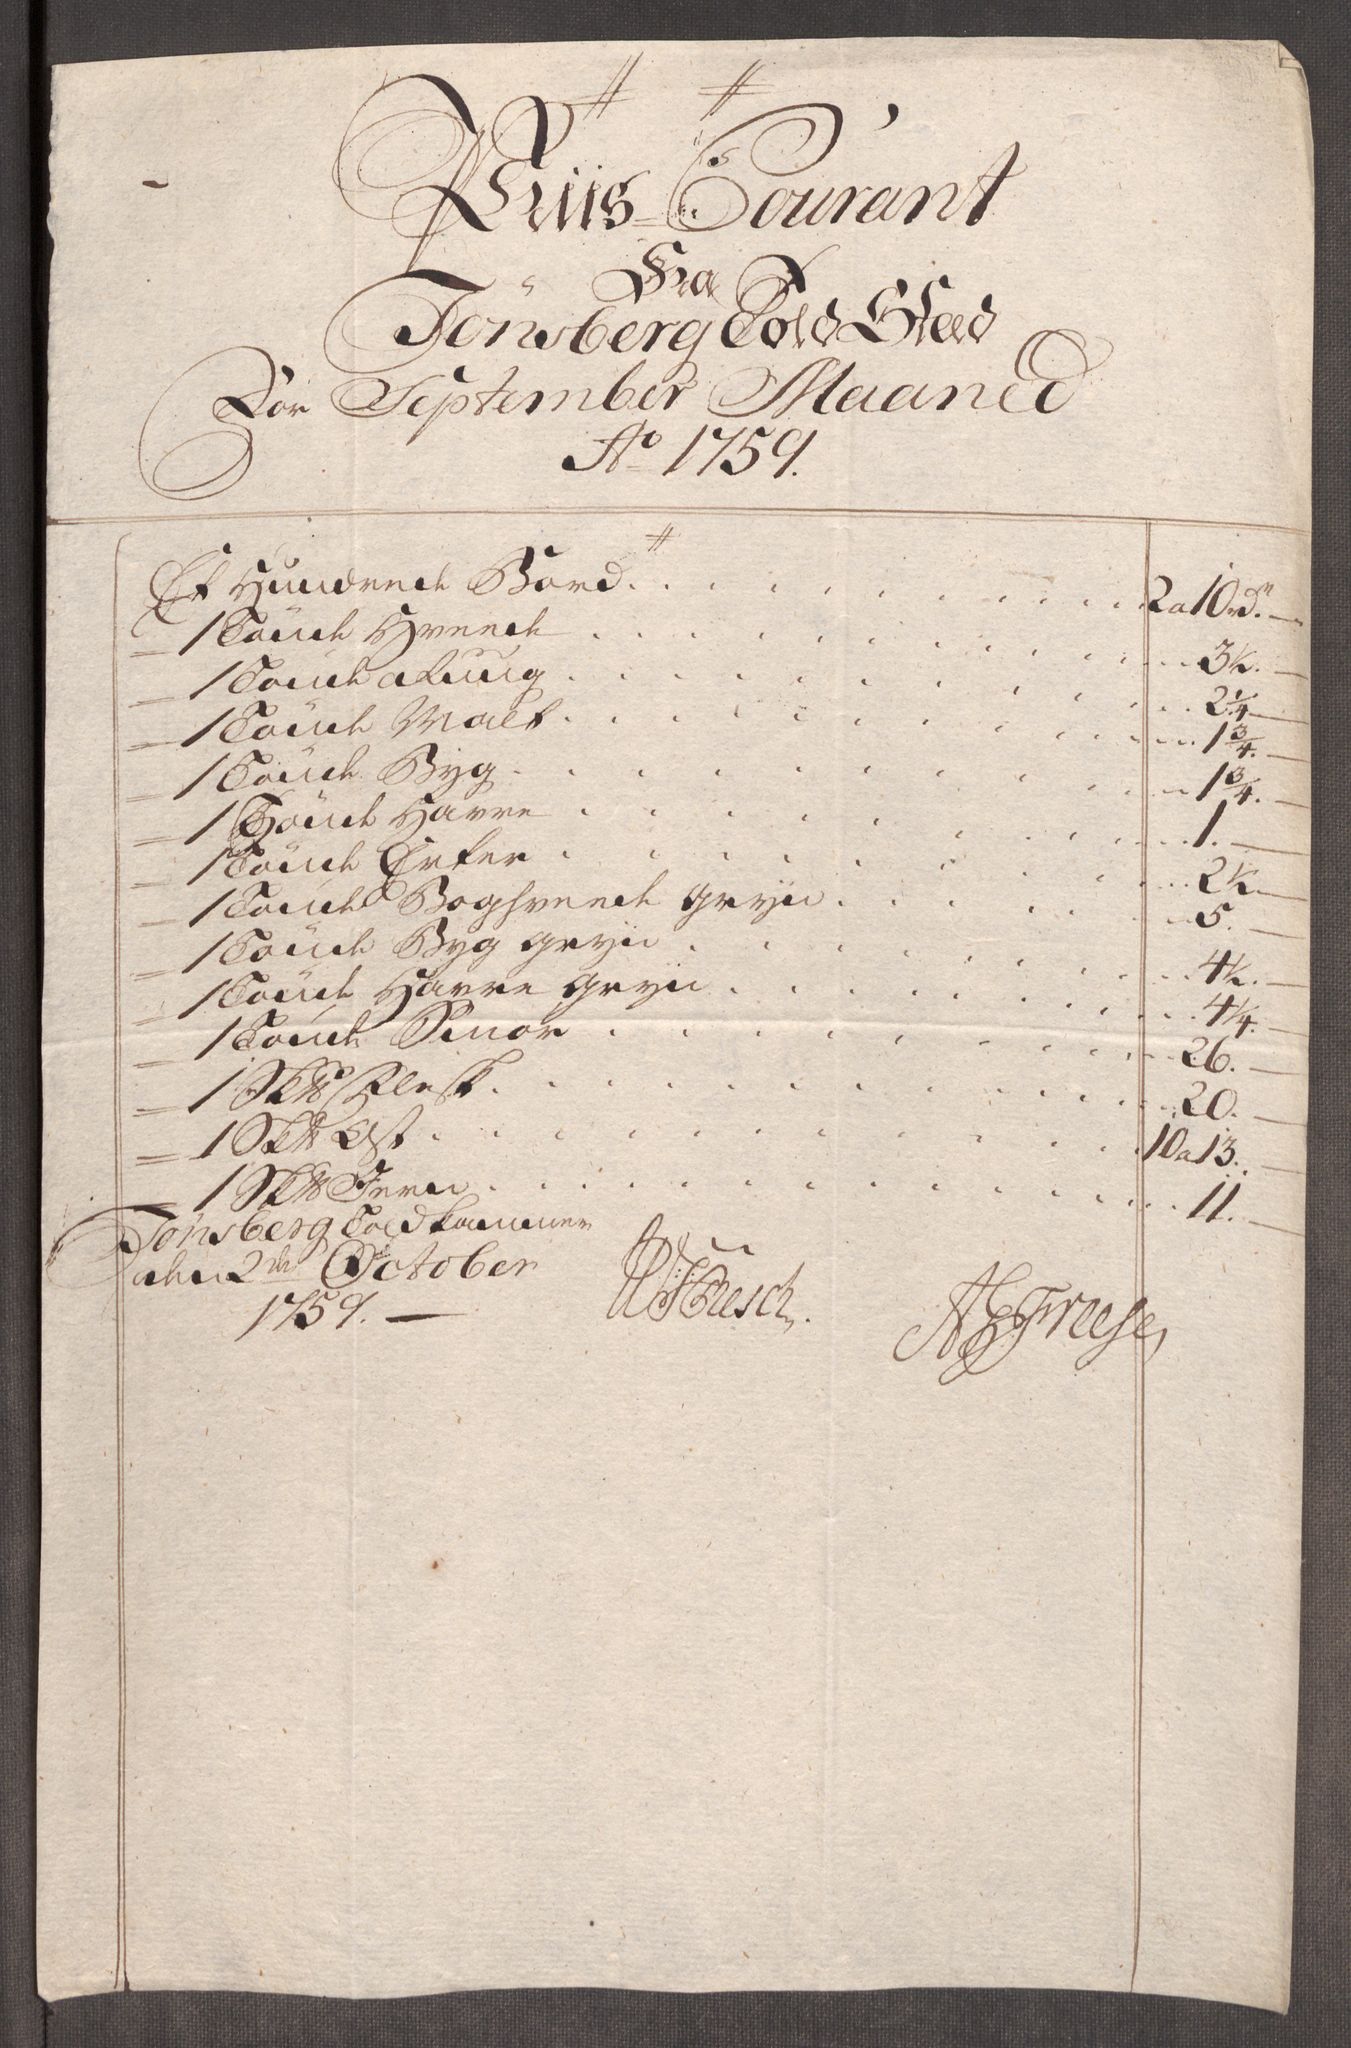 Priis-Courant
Fra
Tönsberg Told Stæd
For September Maaned
Ao 1759.
Et Hundrede Bord 2 a 10 rdr
1 Tönde Hvede 3½.
1 Tönde Rug 2¼
1 Tönde Malt 1¾.
1 Tönde Byg 1¾.
1 Tönde Havre 1.
1 Tönde Erter 2½
1 Tönde Boghvede gryn 5.
1 Tönde Byg gryn 4½.
1 Tönde Havre gryn 4¼.
1 Tönde Smör 26.
1 Sk℔ Flesk 20.
1 Sk℔ Ost 10 a 13.
1 Sk℔ Jern 11.
Tönsberg Toldkammer
den 2den October
1759.